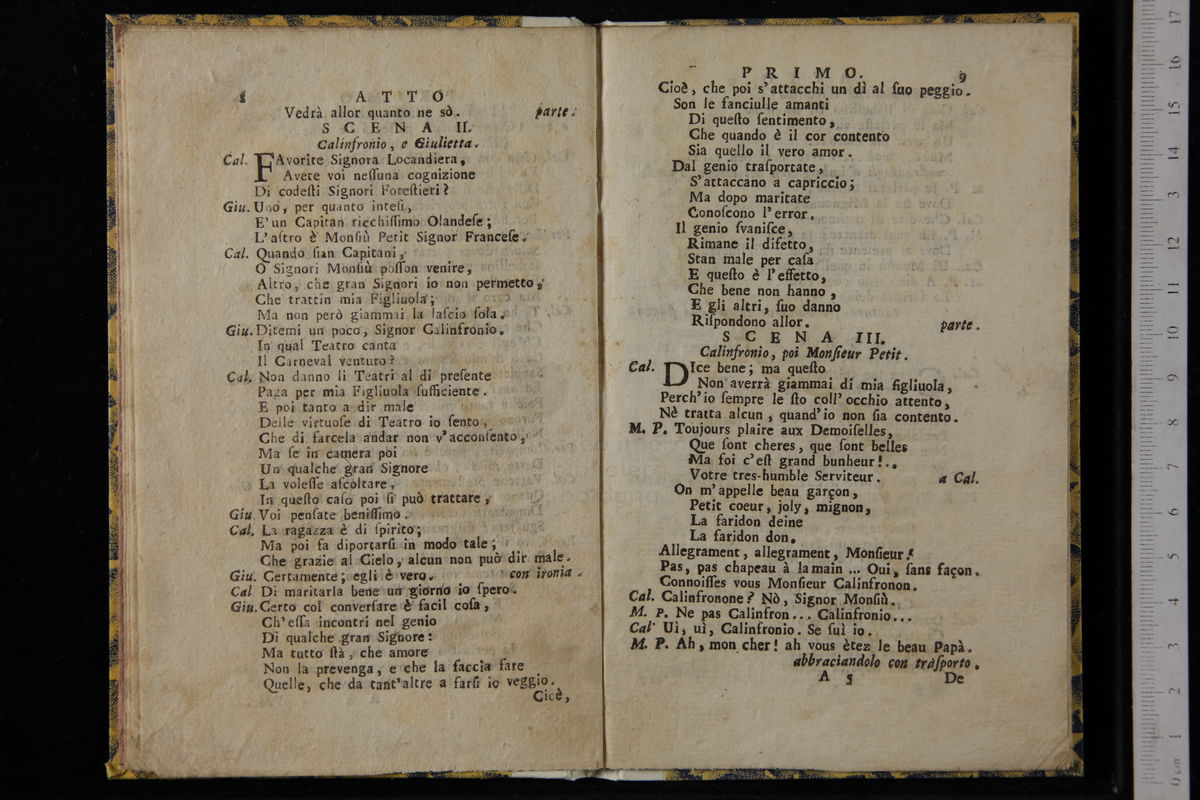 8 ATTO
Vedrà allor quanto ne sò. parte.
SCENA II.
Calinfronio, e Giulietta.
Cal. FAvorite Signora Locandiera,
Avete voi neſſuna cognizione
Di codeſti Signori Foreſtieri?
Giu. Uno, per quanto inteſi,
E' un Capitan ricchiſſimo Olandeſe;
L'altro è Monſiù Petit Signor Franceſe.
Cal. Quando ſian Capitani,
O Signori Monſiù poſſon venire,
Altro, che gran Signori io non permetto,
Che trattin mia Figliuola;
Ma non però giammai la laſcio ſola.
Giu. Ditemi un poco, Signor Calinfronio.
In qual Teatro canta
Il Carneval venturo?
Cal. Non danno li Teatri al dì preſente
Paga per mia Figliuola ſufficiente.
E poi tanto a dir male
Delle virtuoſe di Teatro io ſento,
Che di farcela andar non v'acconſento,
Ma ſe in camera poi
Un qualche gran Signore
La voleſſe aſcoltare,
In queſto caſo poi ſi può trattare,
Giu. Voi penſate beniſſimo.
Cal. La ragazza è di ſpirito;
Ma poi ſa diportarſi in modo tale;
Che grazie al Cielo, alcun non può dir male.
Giu. Certamente; egli è vero. con ironia.
Cal. Di maritarla bene un giorno io ſpero.
Giu. Certo col converſare è facil coſa,
Ch'eſſa incontri nel genio
Di qualche gran Signore:
Ma tutto ſtà, che amore
Non la prevenga, e che la faccia fare
Quelle, che da tant'altre a farſi io veggio.
Cioè,
PRIMO. 9
Cioè, che poi s'attacchi un dì al ſuo peggio.
Son le fanciulle amanti
Di queſto ſentimento,
Che quando è il cor contento
Sia quello il vero amor.
Dal genio traſportate,
S'attaccano a capriccio;
Ma dopo maritate
Conoſcono l'error.
Il genio ſvaniſce,
Rimane il difetto,
Stan male per caſa
E queſto è l'effetto,
Che bene non hanno,
E gli altri, ſuo danno
Riſpondono allor. parte.
SCENA III.
Calinfronio, poi Monſieur Petit.
Cal. DIce bene; ma queſto
Non averrà giammai di mia figliuola,
Perch'io ſempre le ſto coll'occhio attento,
Nè tratta alcun, quand'io non ſia contento.
M. P. Toujours plaire aux Demoiſelles,
Que ſont cheres, que ſont belles
Ma foi c'eſt grand bunheur!..
Votre tres-humble Serviteur. a Cal.
On m'appelle beau garçon,
Petit coeur, joly, mignon,
La faridon deine
La faridon don.
Allegrament, allegrament, Monſieur!
Pas, pas chapeau à la main ... Oui, ſans façon.
Connoiſſes vous Monſieur Calinfronon.
Cal. Calinfronone? Nò, Signor Monſiù.
M. P. Ne pas Calinfron... Calinfronio...
Cal. Uì, uì, Calinfronio. Se ſuì io.
M. P. Ah, mon cher! ah vous êtez le beau Papà.
abbraciandolo con traſporto.
A 5 De